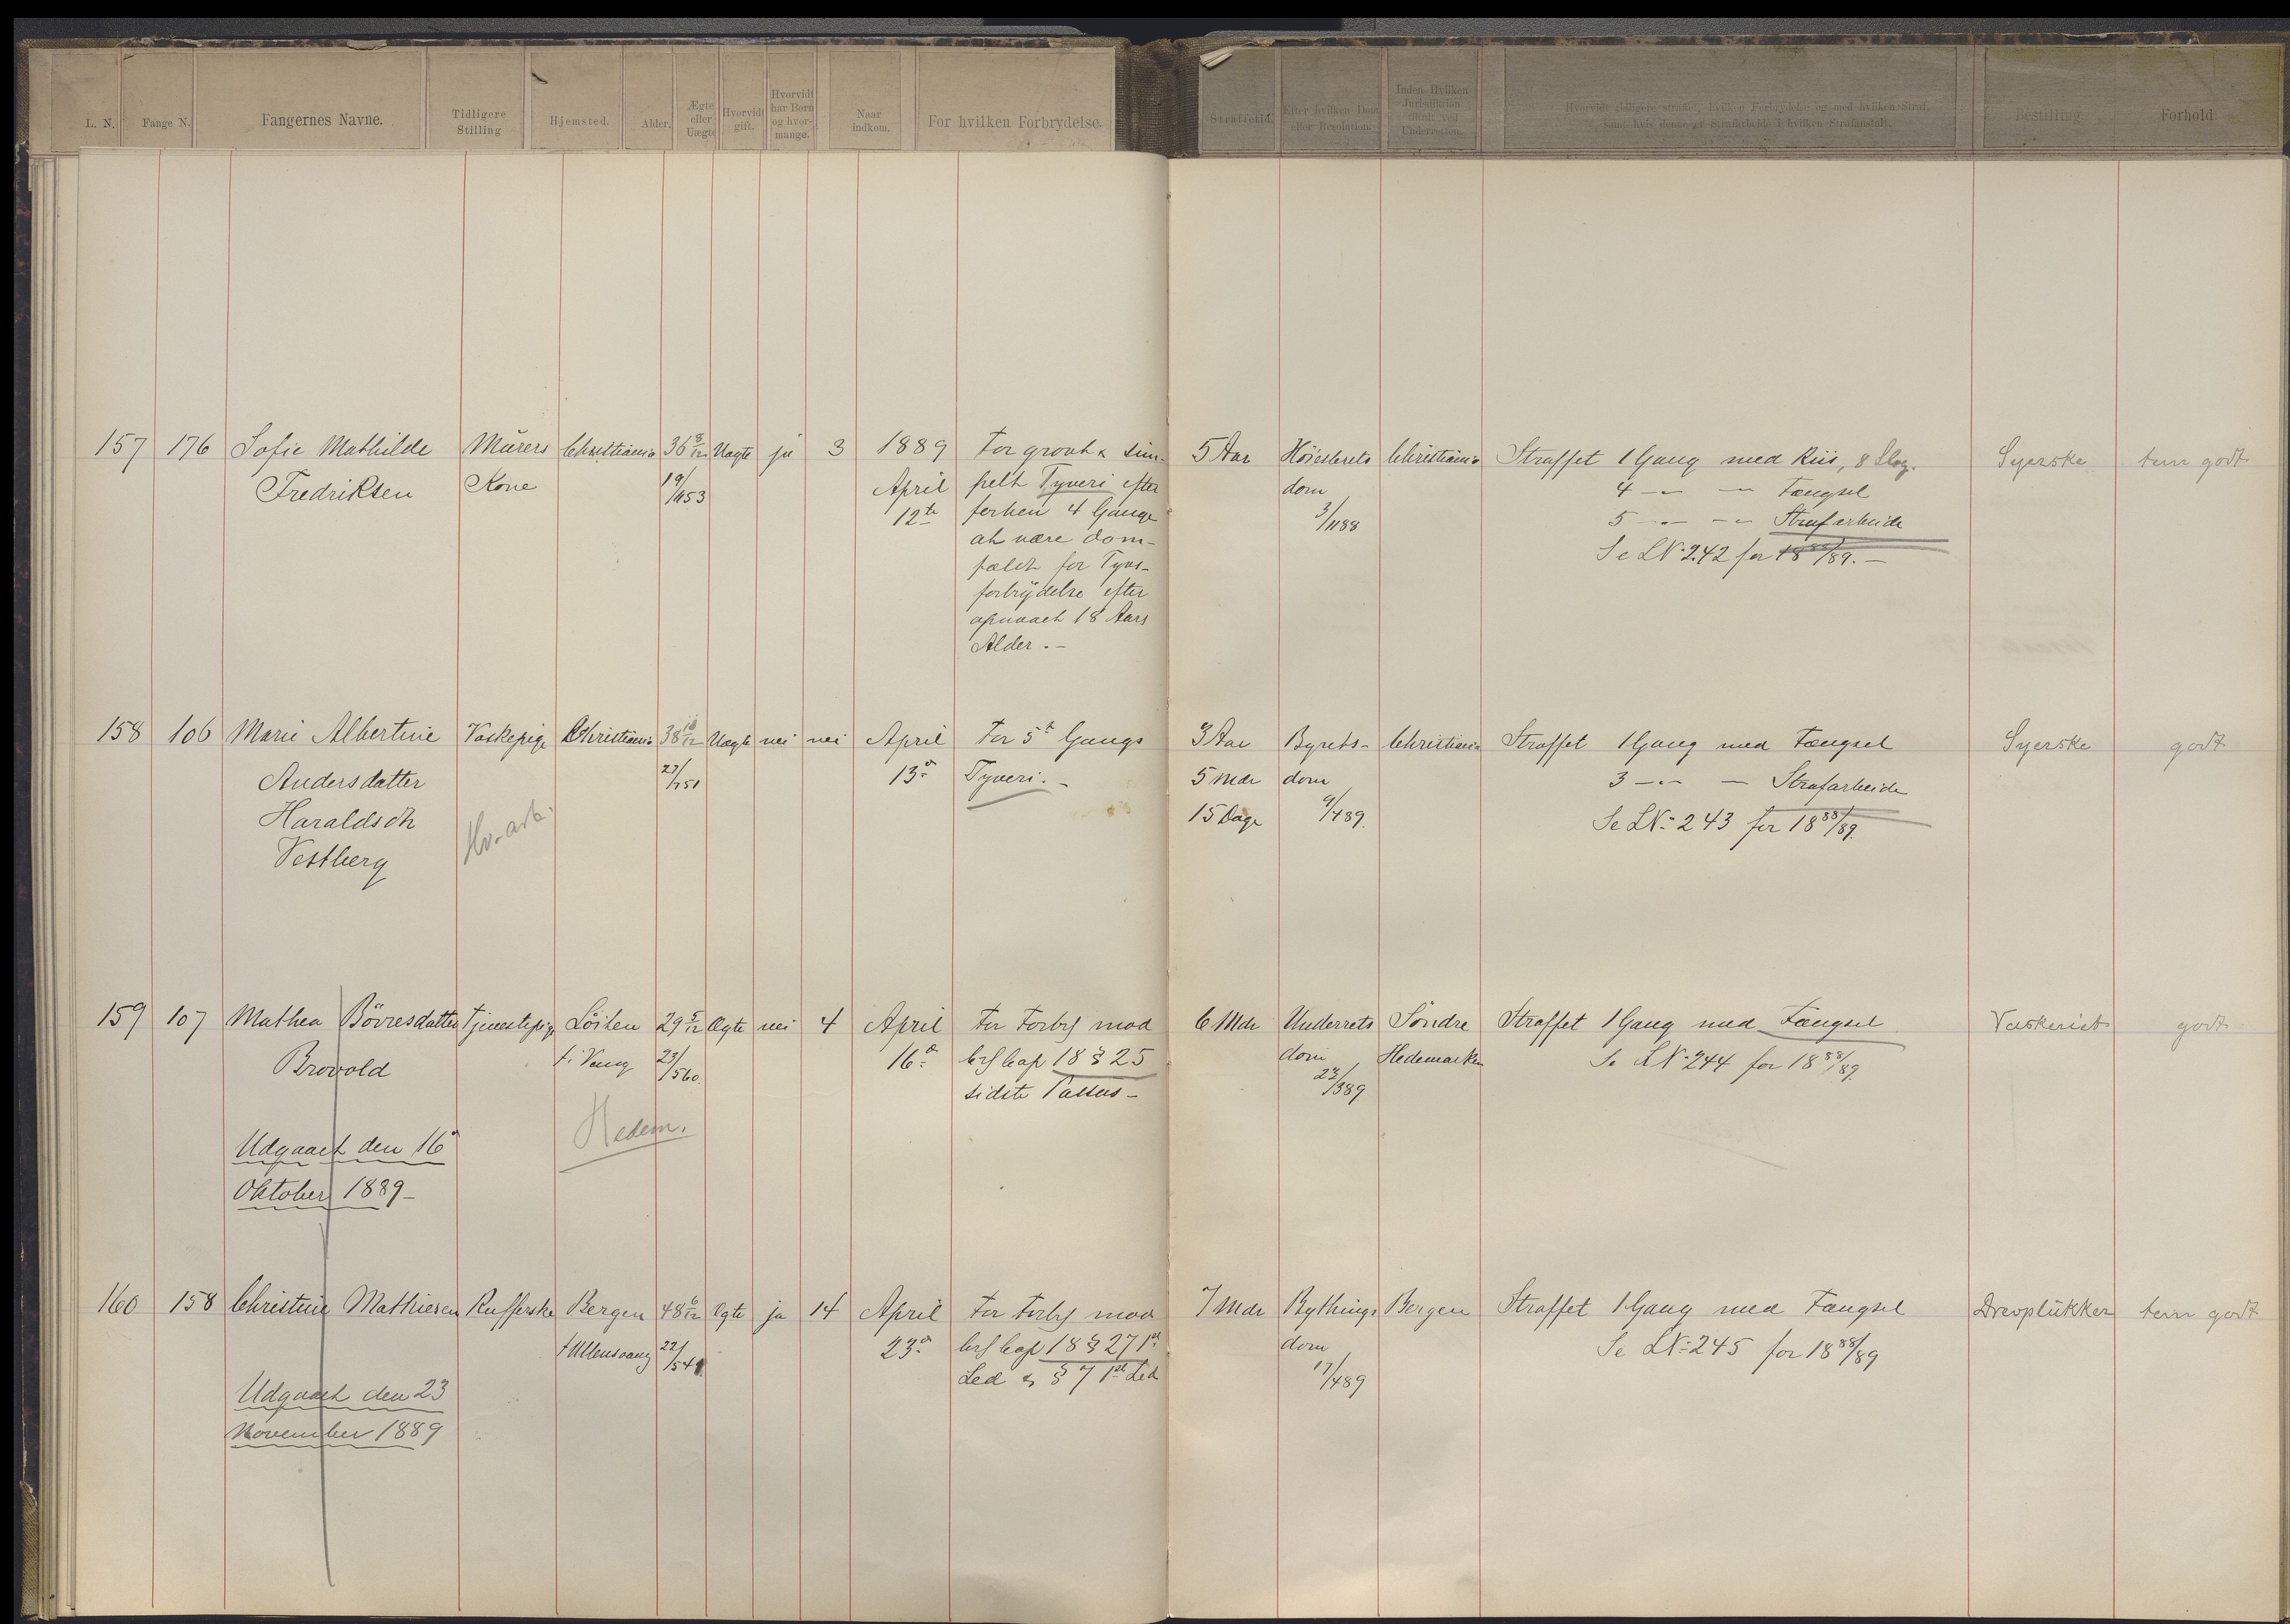 L. N. Fange N. Fangernes Navne. Tidligere Stilling Hjemsted. Alder. Ægte eller Uægte Hvorvidt gift. Hvorvidt har Børn og hvor-mange. Naar indkom. For hvilken Forbrydelse. Straffetid. Efter hvilken Dom eller Resolution. Inden Hvilken Jurisdiktion tiltalt ved Underretten. Hvorvidt tidligere straffet, hvilken Forbrydelse og med hvilken Straf, samt hvis denne er Strafarbeide i hvilken Strafanstalt. Bestilling Forhold
157 176 Sofie Mathilde Murers Christiania 36 8/12 Uægte ja 3 1889 For grovt & sim- 5 Aar Høiesterets Christiania Straffet 1 Gang med Riis, 8 Slag. Syerske tem godt
Fredriksen Kone 19/853 April pelt Tyveri efter dom 4 -"- -"- Fængsel
12te forhen 4 Gange 3/1188 5 -"- -"- Strafarbeide
at være dom- Se LN: 242 for 1888/89. -
fældt for Tyvs-
forbrydelse efter
opnaaet 18 Aars
Alder. -
158 106 Marie Albertine Vaskepige Christiania 38 10/12 Uægte nei nei April For 5te Gangs 3 Aar Byrets- Christiania Straffet 1 Gang med Fængsel Syerske godt
Andersdatter 27/751 13de Tyveri. - 5 Mdr dom 3 -"- - Strafarbeide
Haraldsdtr 15 Dage 9/489. Se LN: 243 for 1888/89.
Vestberg
159 107 Mathea Bövresdatter Tjenestepige Löiten 29 5/12 Ægte nei 4 April For Forbr mod 6 Mdr Underrets Söndre Straffet 1 Gang med Fængsel Vaskerist godt
Brovold f. i Vang 23/560. 16de Crl Cap 18 § 25 dom Hedemarken Se LN: 244 for 1888/89.
sidste Passus - 23/389.
Hedem.
Udgaaet den 16de
Oktober 1889 -
160 158 Christine Mathiesen Rufferske Bergen 48 6/12 Ægte ja 14 April For Forbr mod 7 Mdr Bythings Bergen Straffet 1 Gang med Fængsel Drevplukker tem godt
f Ullensvang 22/541 23de Crl Cap 18 § 27 1ste dom Se LN: 245 for 1888/89
Led & § 7 1ste Led 17/489
Udgaaet den 23
November 1889